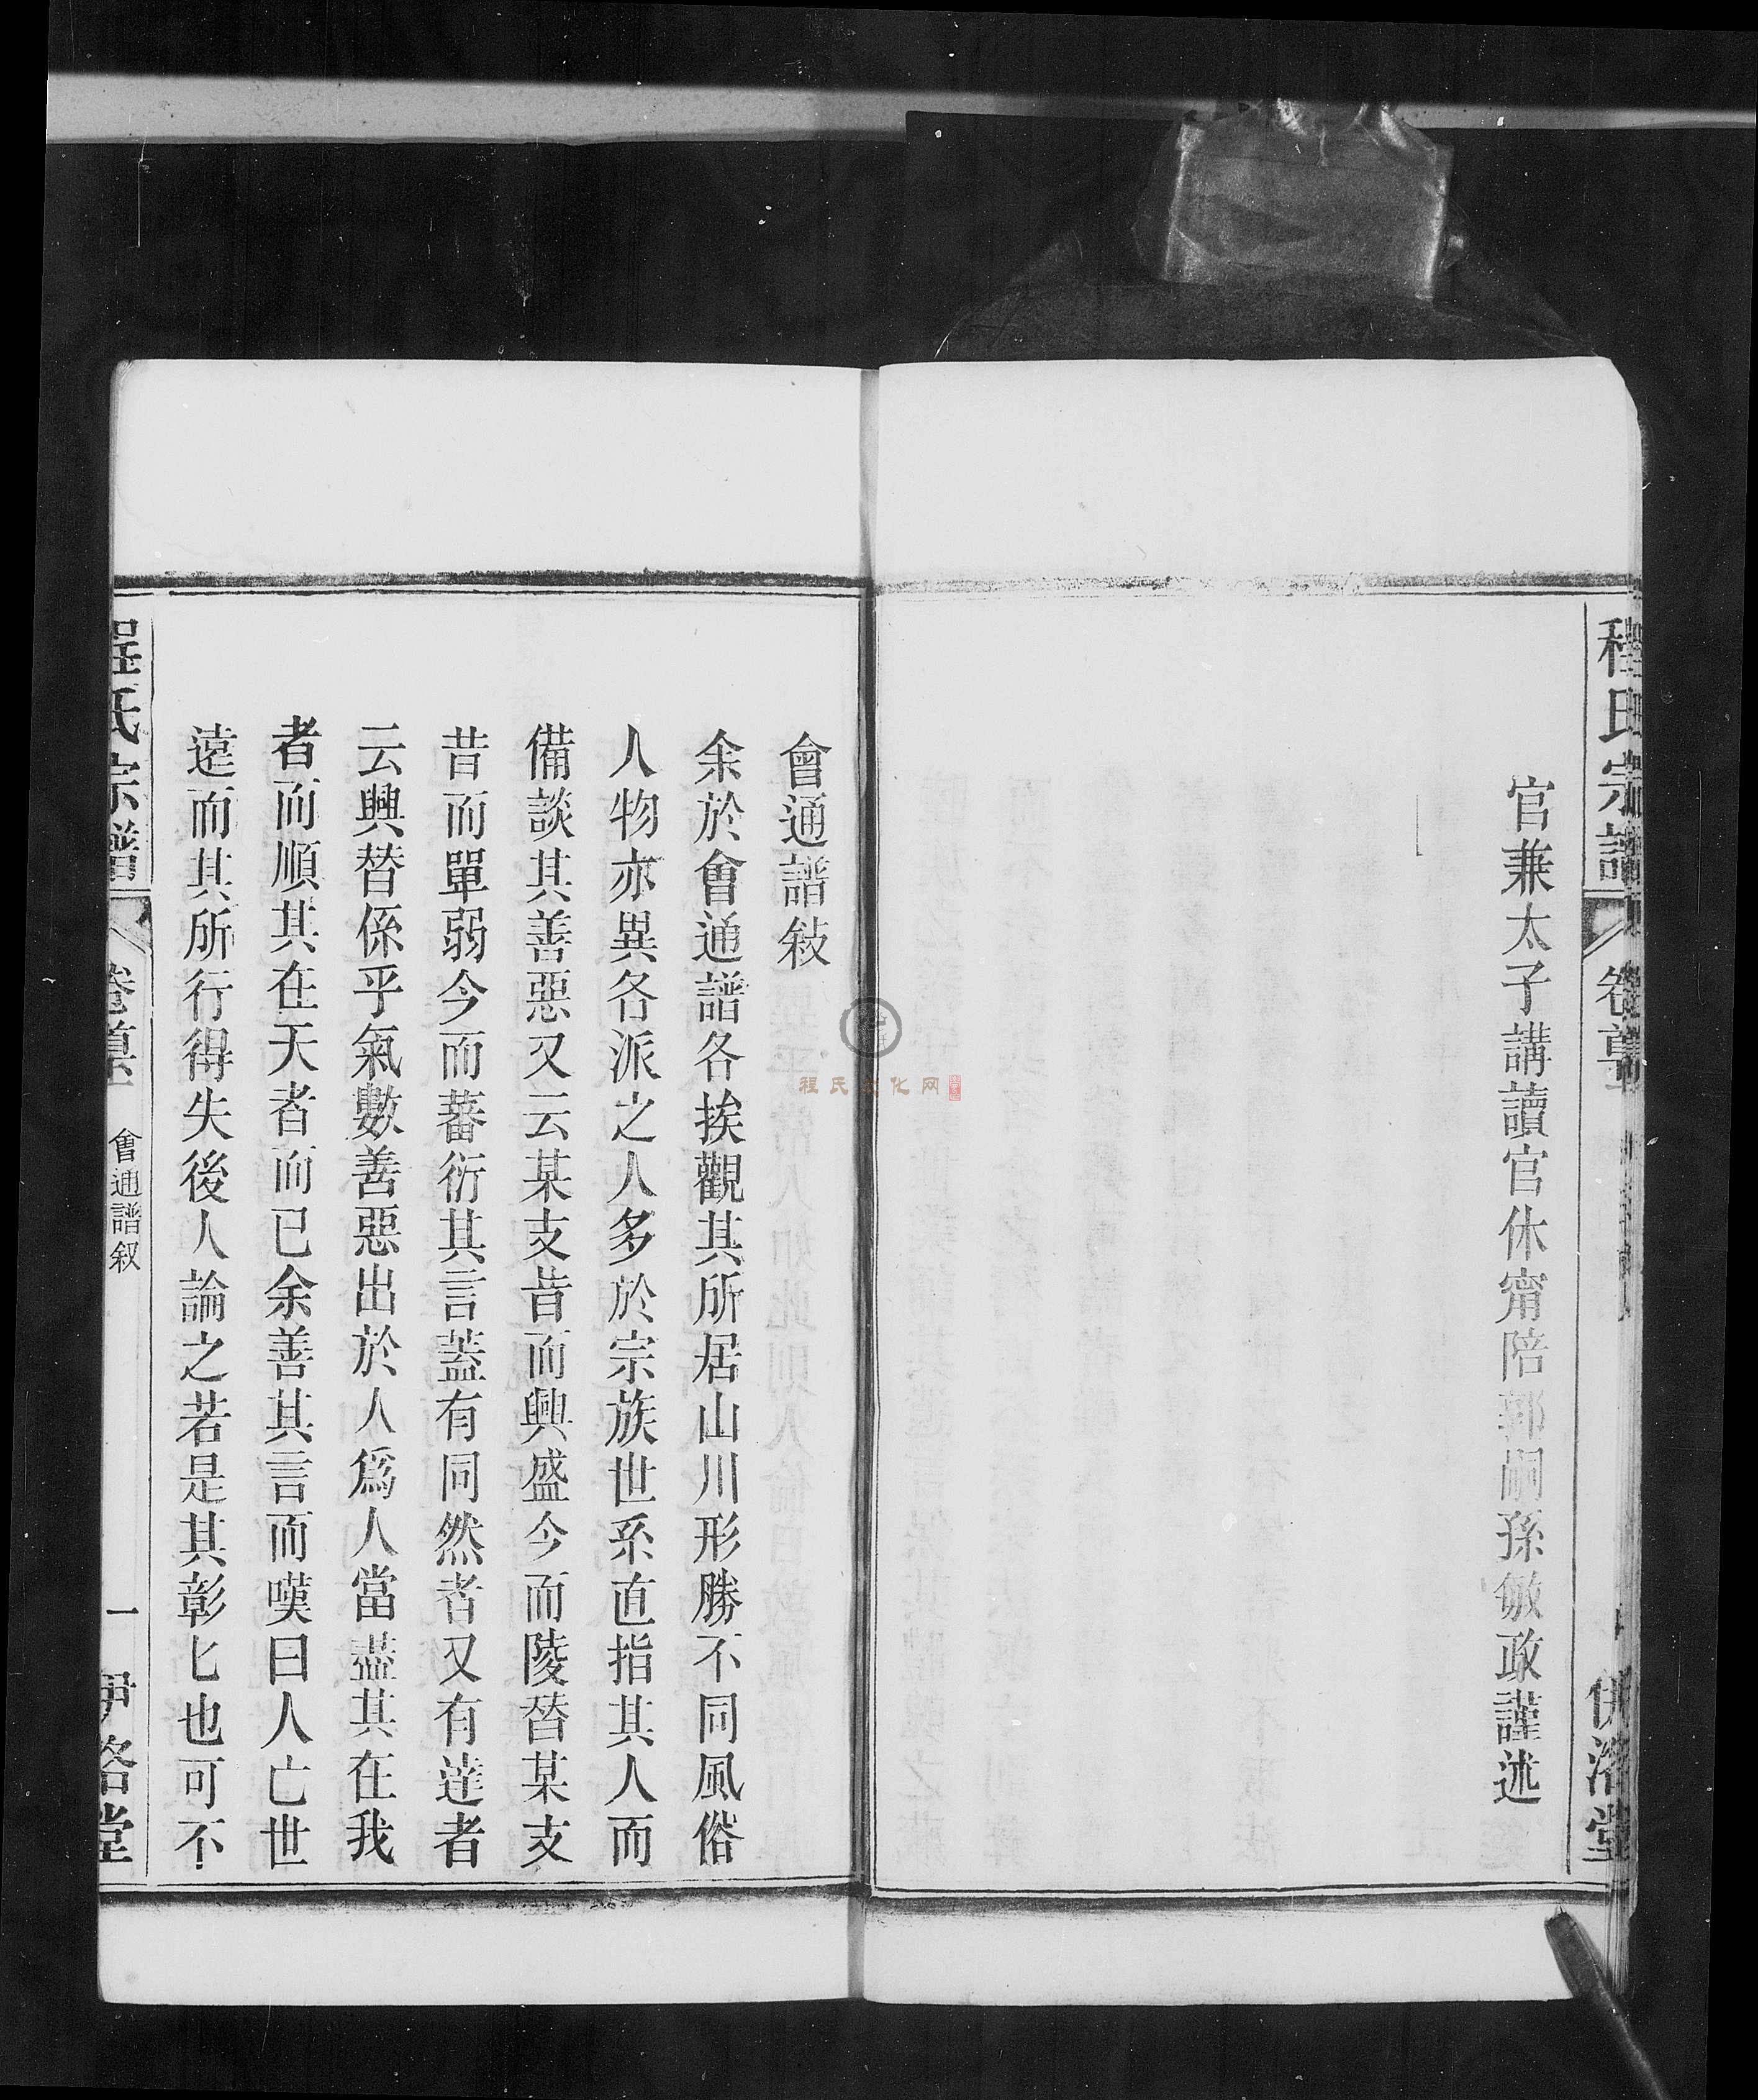 程氏宗譜
卷
洛堂
官兼太子講讀官休甯陪郭嗣孫敏政謹述
會通譜敍
余於會通譜各挨觀其所居山川形勝不同風俗
人物亦異各派之人多於宗族世系直指其人而
備談其善惡又云某支昔而興盛今而陵替某支
昔而單弱今而蕃衍其言蓋有同然者又有達者
云興替係乎氣數善惡出於人爲人當盡其在我
者而順其在天者而已余善其言而嘆曰人亡世
遠而其所行得失後人論之若是其彰匕也可不
程氏宗譜
卷
會通譜叙
一
伊洛堂
程氏文化网